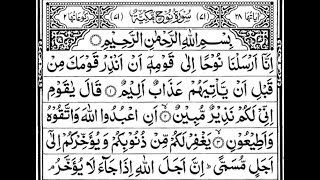 اٰیاتہا ۲۸ (۷۱) سُوْرَةُ نُوْحٍ مَّكِّیَّةٌ (۷۱) رکوعاتہا ۲
بِسْمِ اللّٰهِ الرَّحْمٰنِ الرَّحِیْمِ
اِنَّاۤ اَرْسَلْنَا نُوْحًا اِلٰی قَوْمِهٖۤ اَنْ اَنْذِرْ قَوْمَكَ مِنْ
قَبْلِ اَنْ یَّاْتِیَهُمْ عَذَابٌ اَلِیْمٌ ۝ قَالَ یٰقَوْمِ
اِنِّیْ لَكُمْ نَذِیْرٌ مُّبِیْنٌ ۝ اَنِ اعْبُدُوا اللّٰهَ وَاتَّقُوْهُ
وَاَطِیْعُوْنِ ۝ یَغْفِرْ لَكُمْ مِّنْ ذُنُوْبِكُمْ وَیُؤَخِّرْكُمْ اِلٰۤی
اَجَلٍ مُّسَمًّی ؕ اِنَّ اَجَلَ اللّٰهِ اِذَا جَآءَ لَا یُؤَخَّرُ ۘ